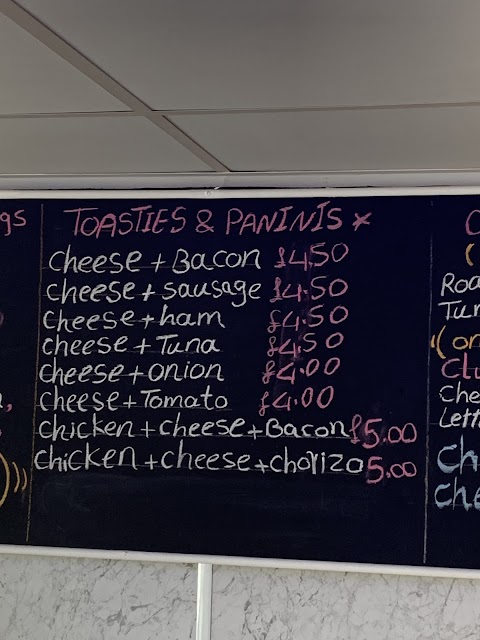 TOASTIES & PANINIS *
Cheese + Bacon £4.50
Cheese + sausage £4.50
Cheese + ham £4.50
Cheese + Tuna £4.50
Cheese + onion £4.00
Cheese + Tomato £4.00
Chicken + cheese + Bacon £5.00
Chicken + cheese + chorizo 5.00